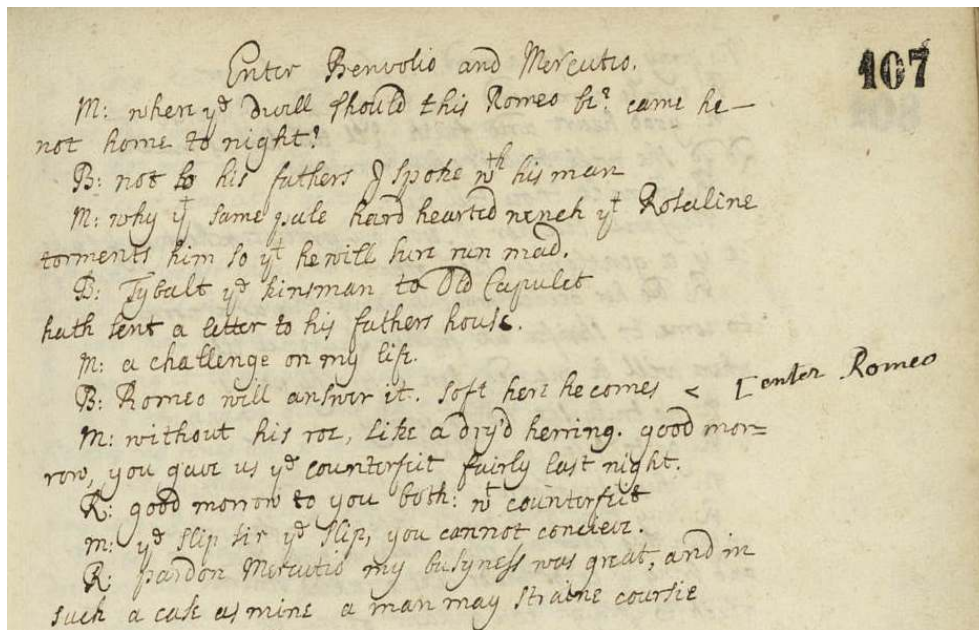 107
Enter Benvolio and Mercutio.
M: where yͤ divill should this Romeo be? came he –
not home to night?
B: not to his fathers I spoke wᵗʰ his man
M: why yᵗ same pale hard hearted wench yᵗ Rosaline
torments him so yᵗ he will sure run mad.
B: Tybalt yͤ kinsman to Old Capulet
hath sent a letter to his fathers house.
M: a challenge on my life.
B: Romeo will answer it. soft here he comes < [enter Romeo
M: without his roe, like a dry'd herring. good mor=
row, you gave us yͤ counterfeit fairly last night.
R: good morrow to you both: wᵗ counterfeit
m: yͤ slip sir yͤ slip, you cannot concieve.
R: pardon Mercutio my busyness was great, and in
such a case as mine a man may straine coursie